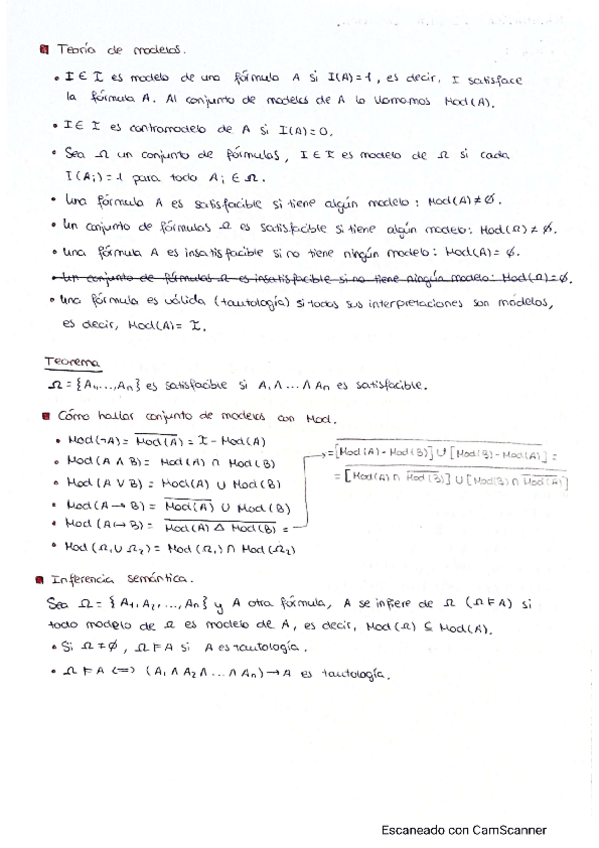 Teoría de modelos.
• I ∈ I es modelo de una fórmula A si I(A)=1, es decir, I satisface
la fórmula A. Al conjunto de modelos de A lo llamamos Mod(A).
• I ∈ I es contramodelo de A si I(A)=0.
• Sea Ω un conjunto de fórmulas, I ∈ I es modelo de Ω si cada
I(Ai)=1 para todo Ai ∈ Ω.
• Una fórmula A es satisfacible si tiene algún modelo: Mod(A) ≠ ∅.
• Un conjunto de fórmulas Ω es satisfacible si tiene algún modelo: Mod(Ω) ≠ ∅.
• Una fórmula A es insatisfacible si no tiene ningún modelo: Mod(A) = ∅.
• Un conjunto de fórmulas Ω es insatisfacible si no tiene ningún modelo: Mod(Ω)=∅.
• Una fórmula es válida (tautología) si todas sus interpretaciones son modelos,
es decir, Mod(A) = I.
Teorema
Ω = {A1,...,An} es satisfacible si A1 ∧ ... ∧ An es satisfacible.
Cómo hallar conjunto de modelos con Mod.
• Mod(¬A) = \overline{Mod(A)} = I - Mod(A)
• Mod(A ∧ B) = Mod(A) ∩ Mod(B)
• Mod(A ∨ B) = Mod(A) ∪ Mod(B)
• Mod(A → B) = \overline{Mod(A)} ∪ Mod(B)
• Mod(A ↔ B) = \overline{Mod(A) Δ Mod(B)} =
= \overline{[Mod(A) - Mod(B)] ∪ [Mod(B) - Mod(A)]} =
= \overline{[Mod(A) ∩ \overline{Mod(B)}] ∪ [Mod(B) ∩ \overline{Mod(A)}]}
• Mod(Ω1 ∪ Ω2) = Mod(Ω1) ∩ Mod(Ω2)
Inferencia semántica.
Sea Ω = {A1, A2, ..., An} y A otra fórmula, A se infiere de Ω (Ω ⊨ A) si
todo modelo de Ω es modelo de A, es decir, Mod(Ω) ⊆ Mod(A).
• Si Ω = ∅, Ω ⊨ A si A es tautología.
• Ω ⊨ A <=> (A1 ∧ A2 ∧ ... ∧ An) → A es tautología.
Escaneado con CamScanner